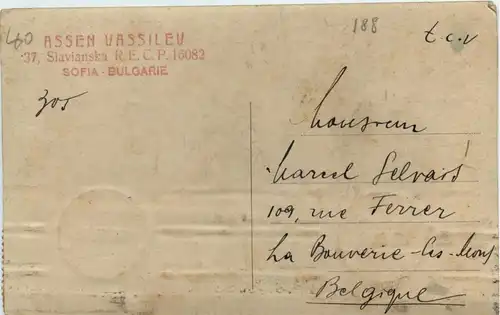 460
188
t.c.v
ASSEN VASSILEV
37, Slavianska R.E.C.P. 16082
SOFIA - BULGARIE
305
Monsieur
Marcel Gelvart
109, rue Ferrer
La Bouverie-les-Mons
Belgique